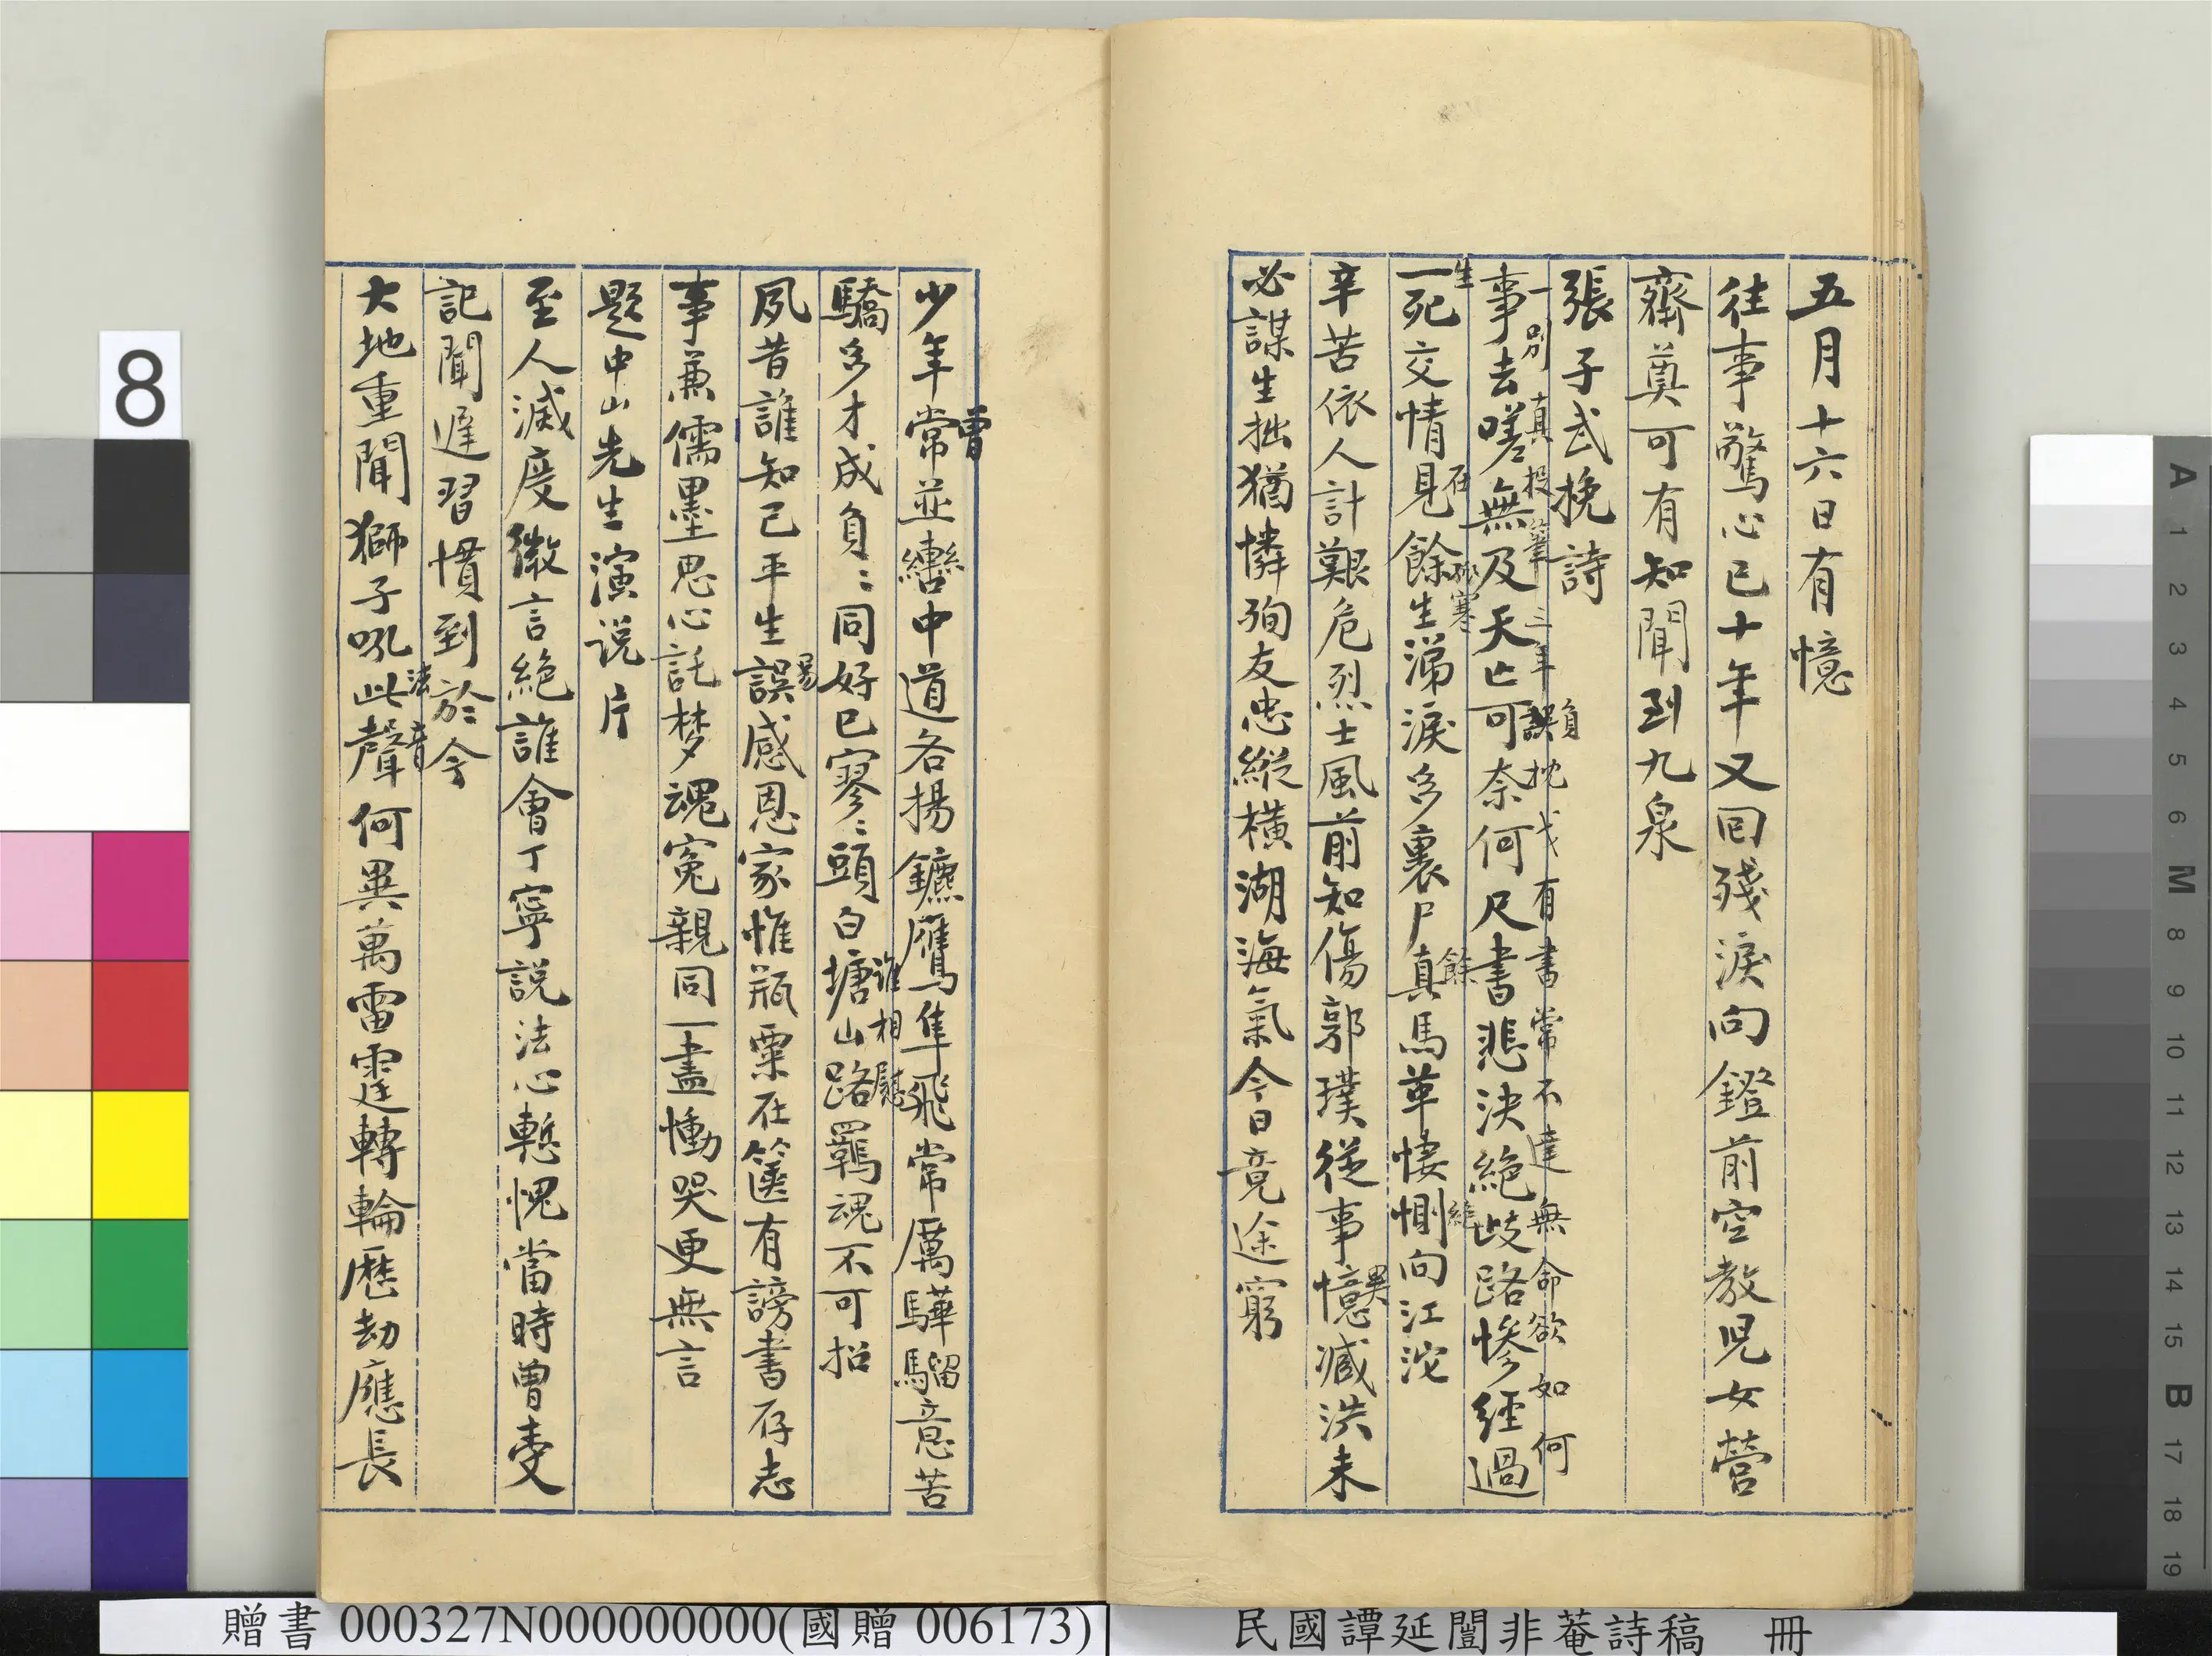 五月十六日有憶
往事驚心已十年又回殘淚向鐙前空教児女營
齋奠可有知聞到九泉
張子武挽詩
一別真投筆三年誤枕戈有書常不達無命欲如何
負
事去嗟無及天亡可奈何尺書悲決絕歧路慘經過
生 在 寒 餘
一死交情見餘生涕淚多裏尸真馬革悽惻向江沱
辛苦依人計艱危烈士風前知傷郭璞從事憶臧洪未
異
必謀生拙猶憐殉友忠縱橫湖海氣今日竟途窮
曾
少年常並轡中道各揚鑣鷹隼飛常厲驊騮意苦
驕多才成負負同好已寥寥頭白塘山路羈魂不可招
誰相慰
夙昔誰知己平生誤感恩家惟瓶粟在篋有謗書存志
事兼儒墨思心託梦魂冤親同一盡慟哭更無言
題中山先生演说片
至人滅度微言絕誰會丁寧説法心慙愧當時曾受
記聞遲習慣到於今
大地重聞獅子吼此聲何異萬雷霆轉輪歷劫應長
法音
8
A 1 2 3 4 5 6 M 8 9 10 11 12 13 14 15 B 17 18 19
贈書 000327N000000000(國贈 006173)
民國譚延闓非菴詩稿 冊